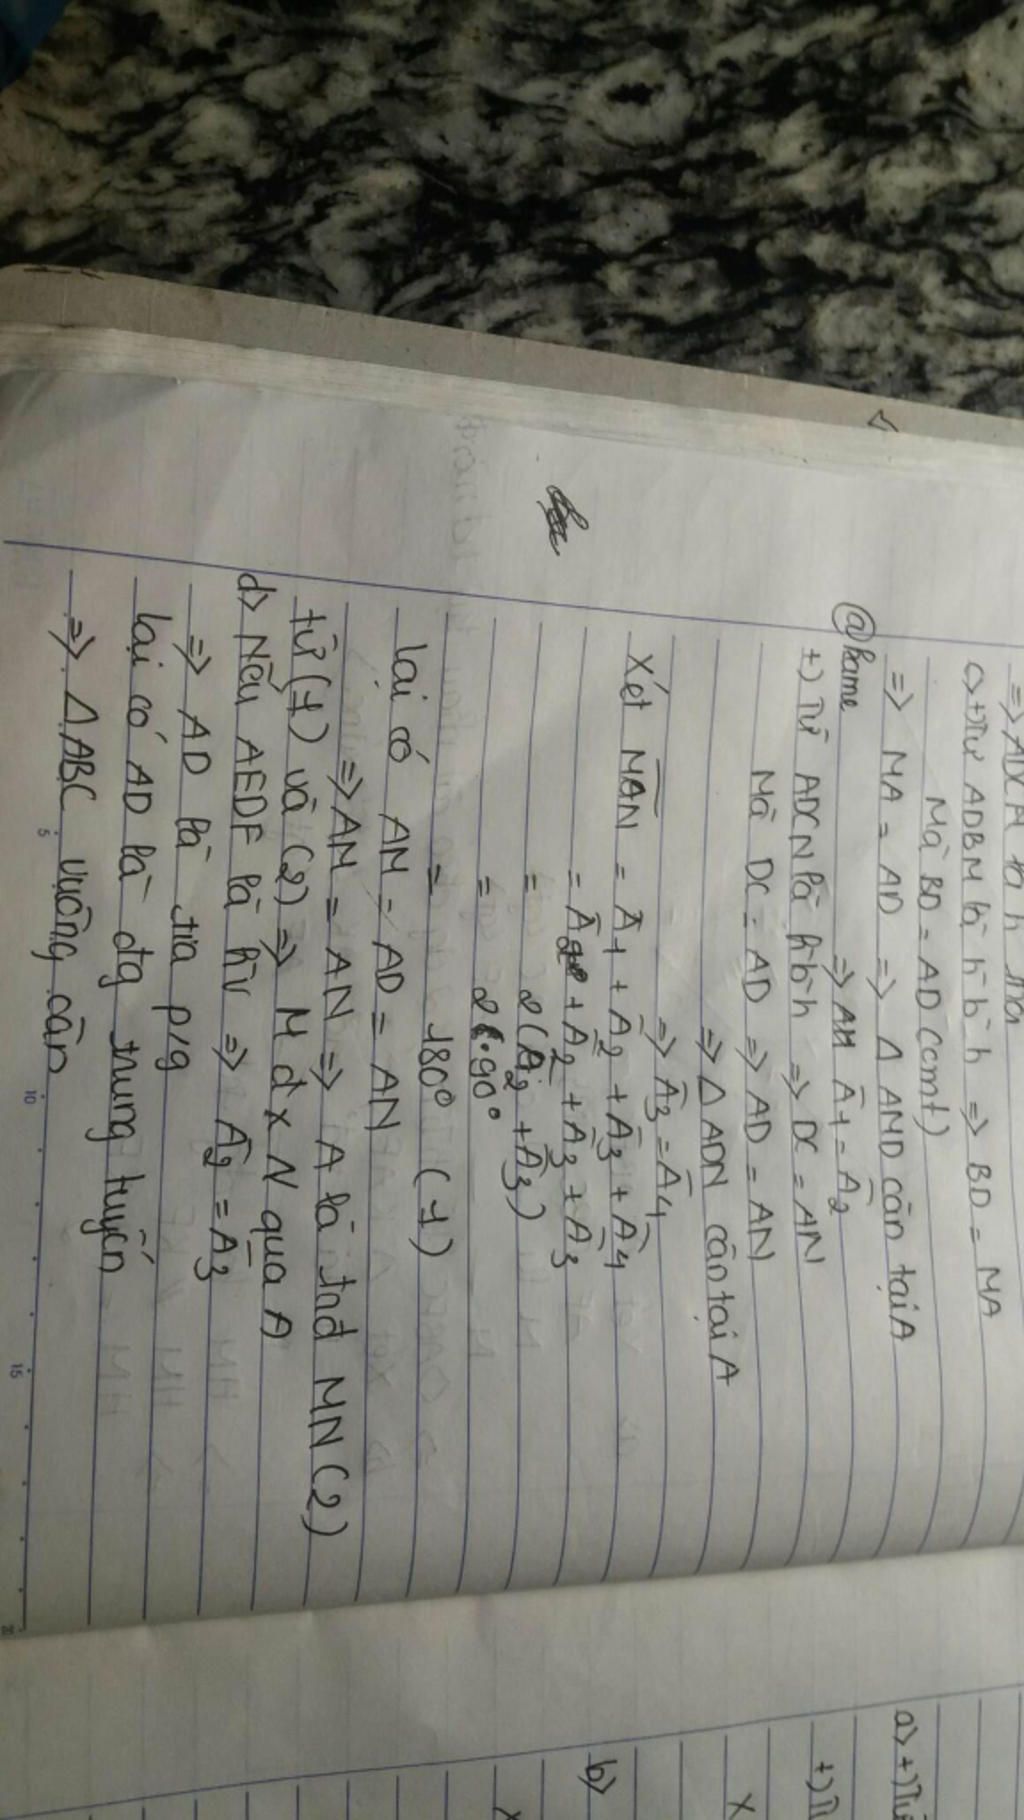 => ADCN là h thoi
c> +) Tứ ADBM là h b h => BD = MA
Mà BD = AD (cmt)
=> MA = AD => Δ AMD cân tại A
=> Â1 = Â2
@kame
+) Tứ ADCN là h b h => DC = AN
Mà DC = AD => AD = AN
=> Δ ADN cân tại A
=> Â3 = Â4
Xét MAN = Â1 + Â2 + Â3 + Â4
= Â2 + Â2 + Â3 + Â3
= 2(Â2 + Â3)
= 2.90°
= 180° (1)
lại có AM = AD = AN
=> AM = AN => A là tnđ MN (2)
từ (1) và (2) => M đ x N qua A
d> Nếu AEDF là hv => Â2 = Â3
=> AD là tia p/g
lại có AD là đg trung tuyến
=> Δ ABC vuông cân
5
10
15
20
a> +) Tứ
+) Tứ
X
b>
X